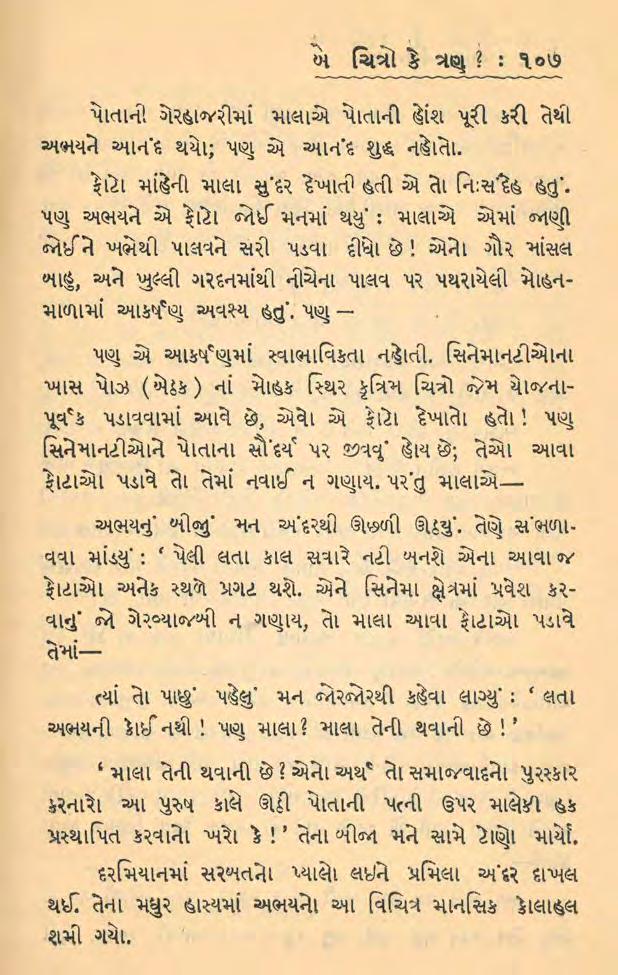 બે ચિત્રો કે ત્રણ ? : ૧૦૭
પોતાની ગેરહાજરીમાં માલાએ પોતાની હોંશ પૂરી કરી તેથી
અભયને આનંદ થયો; પણ એ આનંદ શુદ્ધ નહોતો.
ફોટો માંહેની માલા સુંદર દેખાતી હતી એ તો નિઃસંદેહ હતું.
પણ અભયને એ ફોટો જોઈ મનમાં થયું : માલાએ એમાં જાણી
જોઈને ખભેથી પાલવને સરી પડવા દીધો છે ! એનો ગૌર માંસલ
બાહુ, અને ખુલ્લી ગરદનમાંથી નીચેના પાલવ પર પથરાયેલી મોહન-
માળામાં આકર્ષણ અવશ્ય હતું. પણ —
પણ એ આકર્ષણમાં સ્વાભાવિકતા નહોતી. સિનેમાનટીઓના
ખાસ પોઝ (બેઠક) નાં મોહક સ્થિર કૃત્રિમ ચિત્રો જેમ યોજના-
પૂર્વક પડાવવામાં આવે છે, એવો એ ફોટો દેખાતો હતો ! પણ
સિનેમાનટીઓને પોતાના સૌંદર્ય પર જીવવું હોય છે; તેઓ આવા
ફોટાઓ પડાવે તો તેમાં નવાઈ ન ગણાય. પરંતુ માલાએ—
અભયનું બીજું મન અંદરથી ઊછળી ઊઠ્યું. તેણે સંભળા-
વવા માંડ્યું : ‘ પેલી લતા કાલ સવારે નટી બનશે એના આવા જ
ફોટાઓ અનેક સ્થળે પ્રગટ થશે. એને સિનેમા ક્ષેત્રમાં પ્રવેશ કર-
વાનું જો ગેરવ્યાજબી ન ગણાય, તો માલા આવા ફોટાઓ પડાવે
તેમાં—
ત્યાં તો પાછું પહેલું મન જોરજોરથી કહેવા લાગ્યું : ‘ લતા
અભયની કોઈ નથી ! પણ માલા? માલા તેની થવાની છે ! ’
‘ માલા તેની થવાની છે ? એનો અર્થ તો સમાજવાદનો પુરસ્કાર
કરનારો આ પુરુષ કાલે ઊઠી પોતાની પત્ની ઉપર માલેકી હક
પ્રસ્થાપિત કરવાનો ખરો કે ! ’ તેના બીજા મને સામે ટોણો માર્યો.
દરમિયાનમાં સરબતનો પ્યાલો લઇને પ્રમિલા અંદર દાખલ
થઈ. તેના મધુર હાસ્યમાં અભયનો આ વિચિત્ર માનસિક કોલાહલ
શમી ગયો.